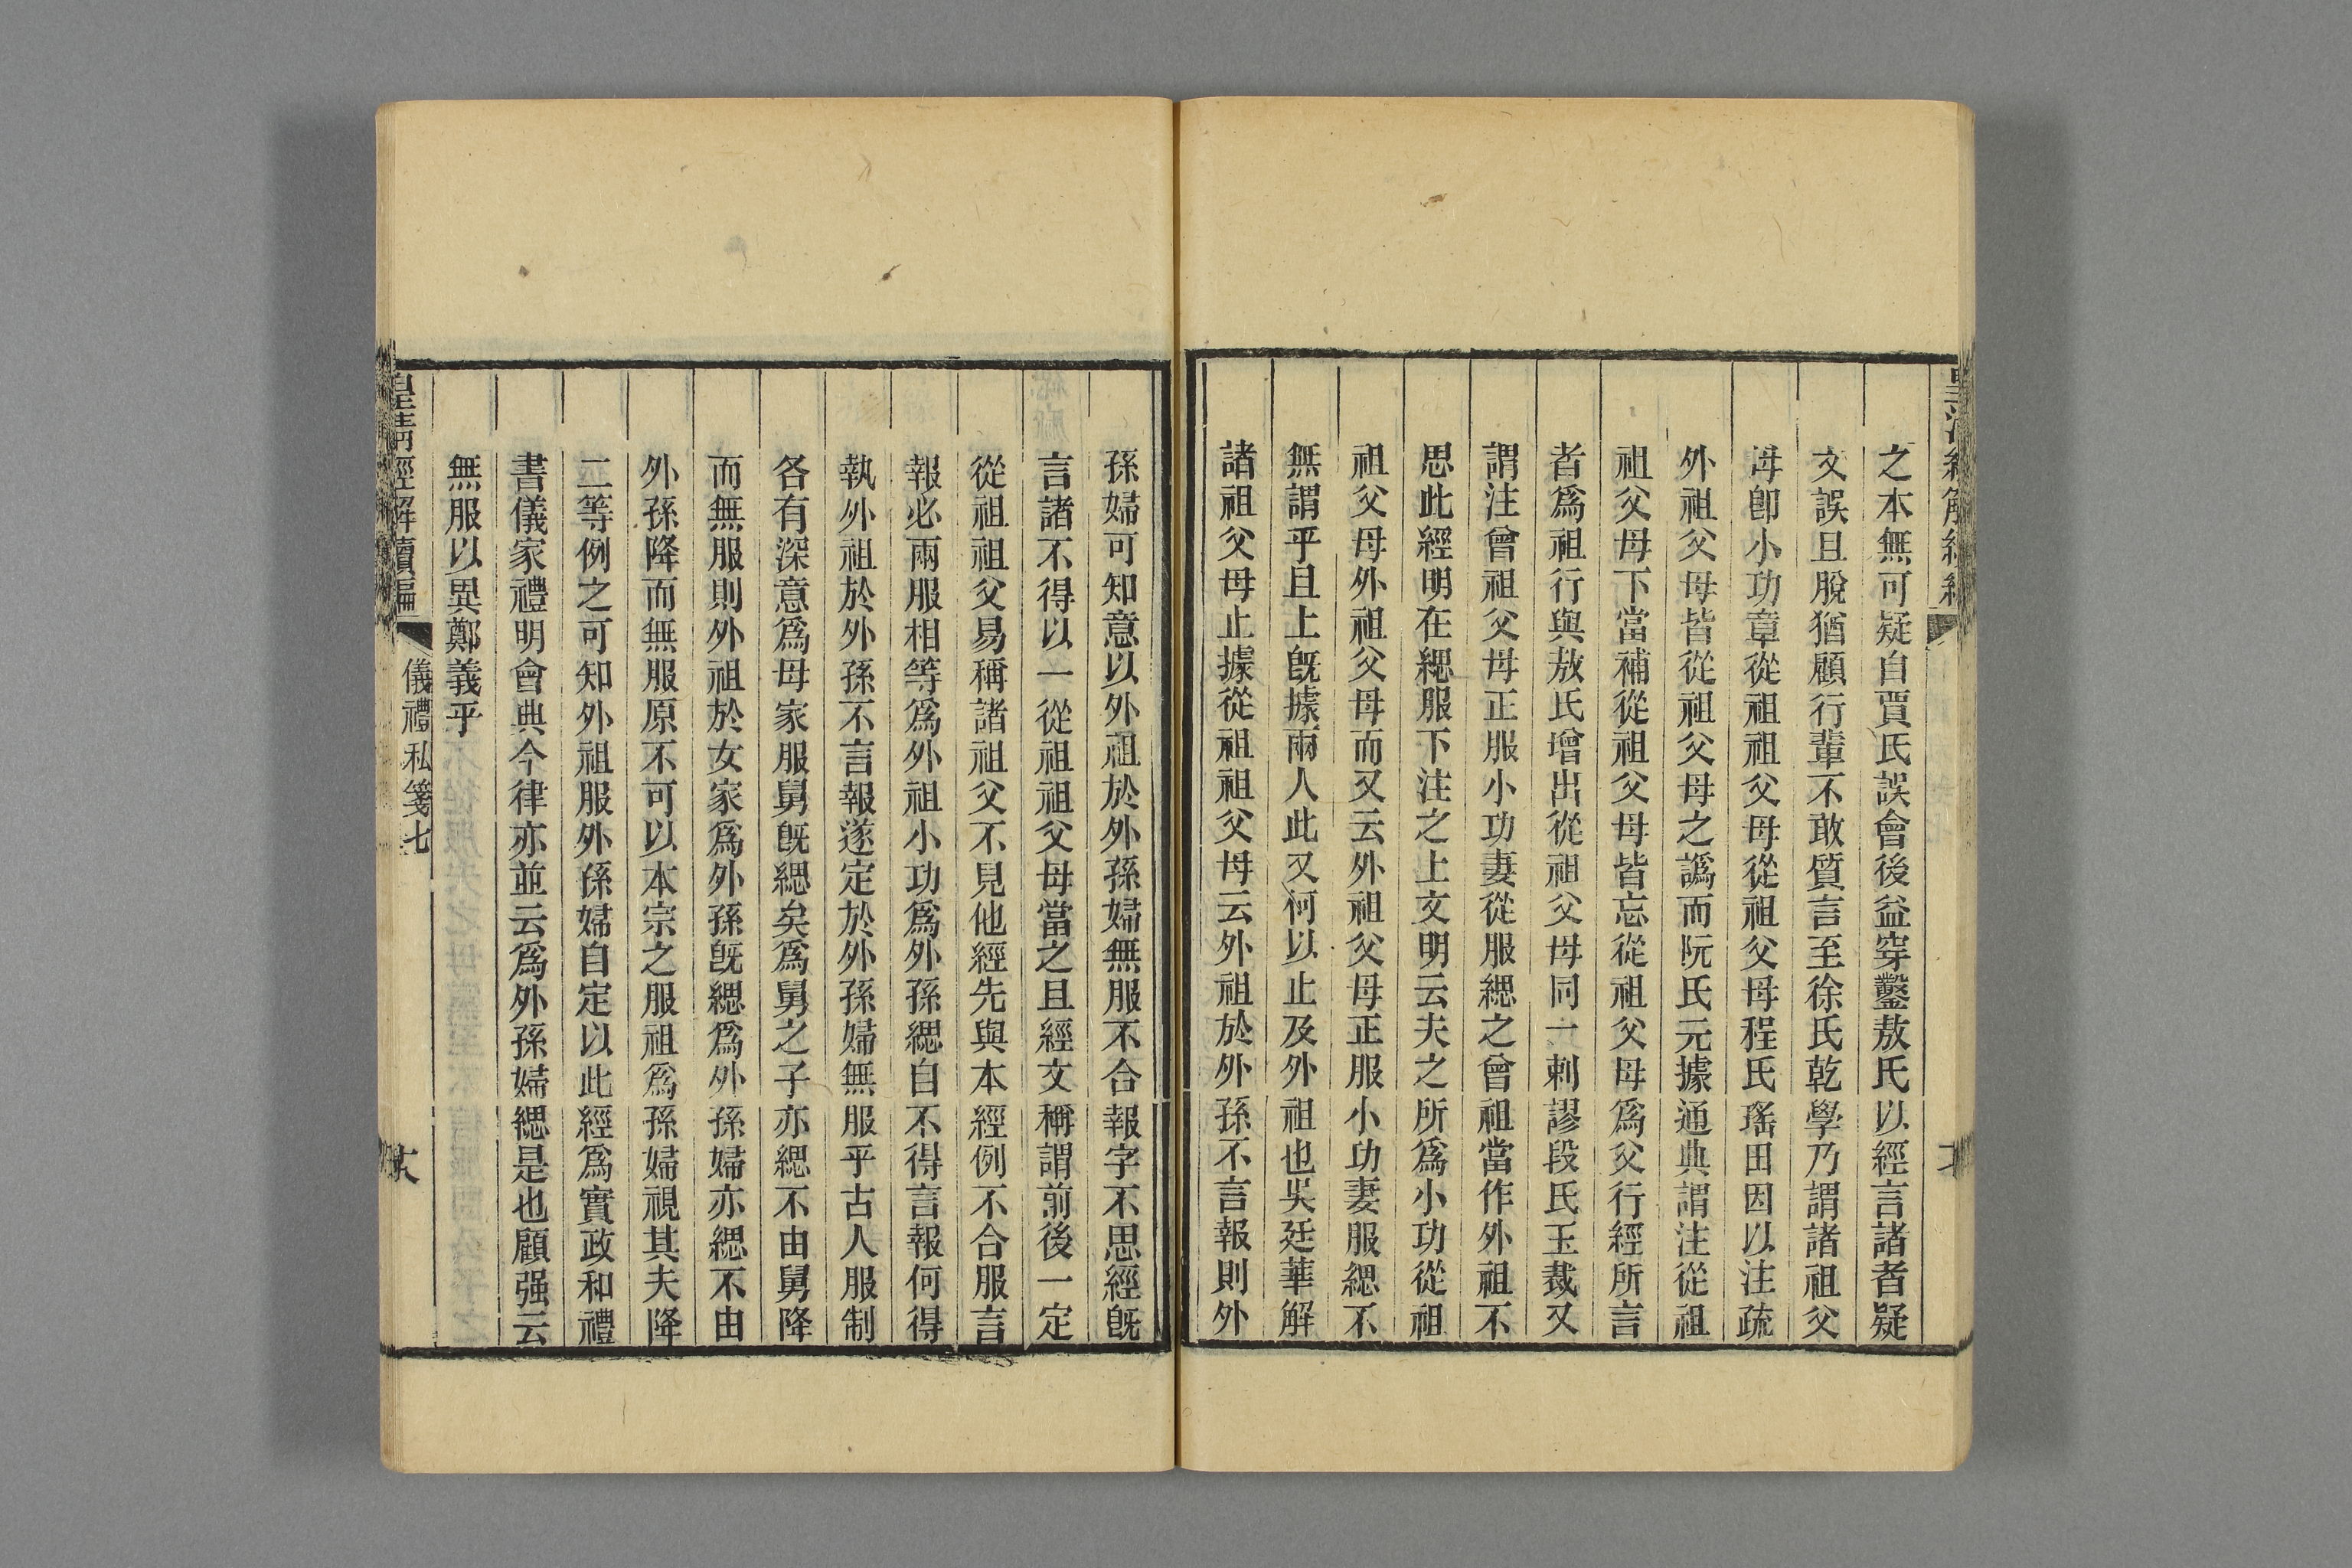 之本無可疑自賈氏誤會後益穿鑿敖氏以經言諸者疑
文誤且脫猶顧行輩不敢質言至徐氏乾學乃謂諸祖父
母卽小功章從祖祖父母從祖父母程氏瑤田因以注疏
外祖父母皆從祖父母之譌而阮氏元據通典謂注從祖
祖父母下當補從祖父母皆忘從祖父母爲父行經所言
者爲祖行與敖氏增出從祖父母同一剌謬段氏玉裁又
謂注曾祖父母正服小功妻從服緦之曾祖當作外祖不
思此經明在緦服下注之上文明云夫之所爲小功從祖
祖父母外祖父母而又云外祖父母正服小功妻服緦不
無謂乎且上旣據兩人此又何以止及外祖也吳廷華解
諸祖父母止據從祖祖父母云外祖於外孫不言報則外
孫婦可知意以外祖於外孫婦無服不合報字不思經旣
言諸不得以一從祖祖父母當之且經文稱謂前後一定
從祖祖父易稱諸祖父不見他經先與本經例不合服言
報必兩服相等爲外祖小功爲外孫緦自不得言報何得
執外祖於外孫不言報遂定於外孫婦無服乎古人服制
各有深意爲母家服舅旣緦矣爲舅之子亦緦不由舅降
而無服則外祖於女家爲外孫旣緦爲外孫婦亦緦不由
外孫降而無服原不可以本宗之服祖爲孫婦視其夫降
二等例之可知外祖服外孫婦自定以此經爲實政和禮
書儀家禮明會典今律亦並云爲外孫婦緦是也顧强云
無服以異鄭義乎
皇淸經解續編
儀禮私箋七